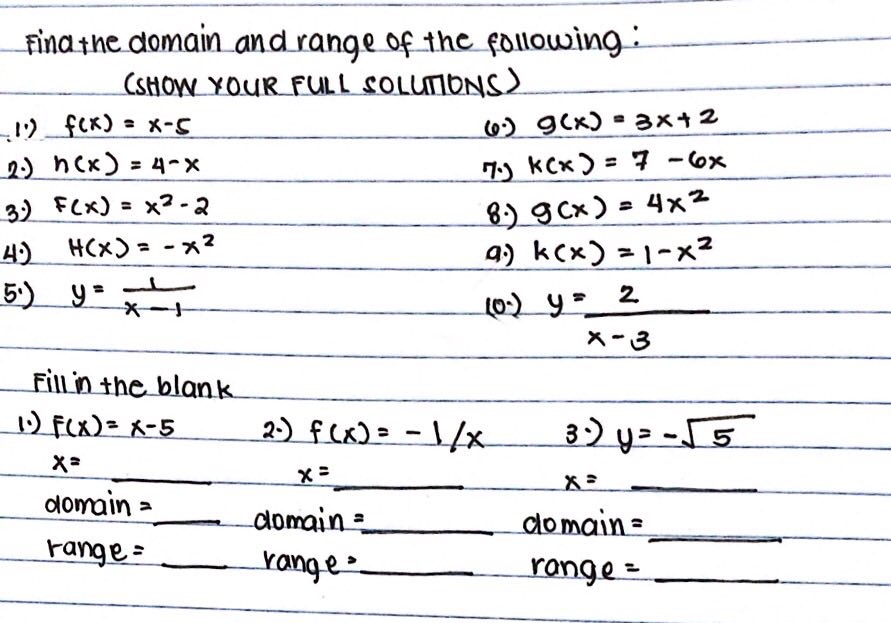 Find the domain and range of the following:
(SHOW YOUR FULL SOLUTIONS)
1.) f(x) = x-5
2.) h(x) = 4-x
3.) F(x) = x²-2
4.) H(x) = -x²
5.) y = 1/x-1
6.) g(x) = 3x+2
7.) k(x) = 7 -6x
8.) g(x) = 4x²
9.) k(x) = 1-x²
10.) y = 2/x-3
Fill in the blank
1.) F(x) = x-5
x= ____
domain = ____
range = ____
2.) f(x) = -1/x
x= ____
domain = ____
range = ____
3.) y = -√5
x= ____
domain = ____
range = ____